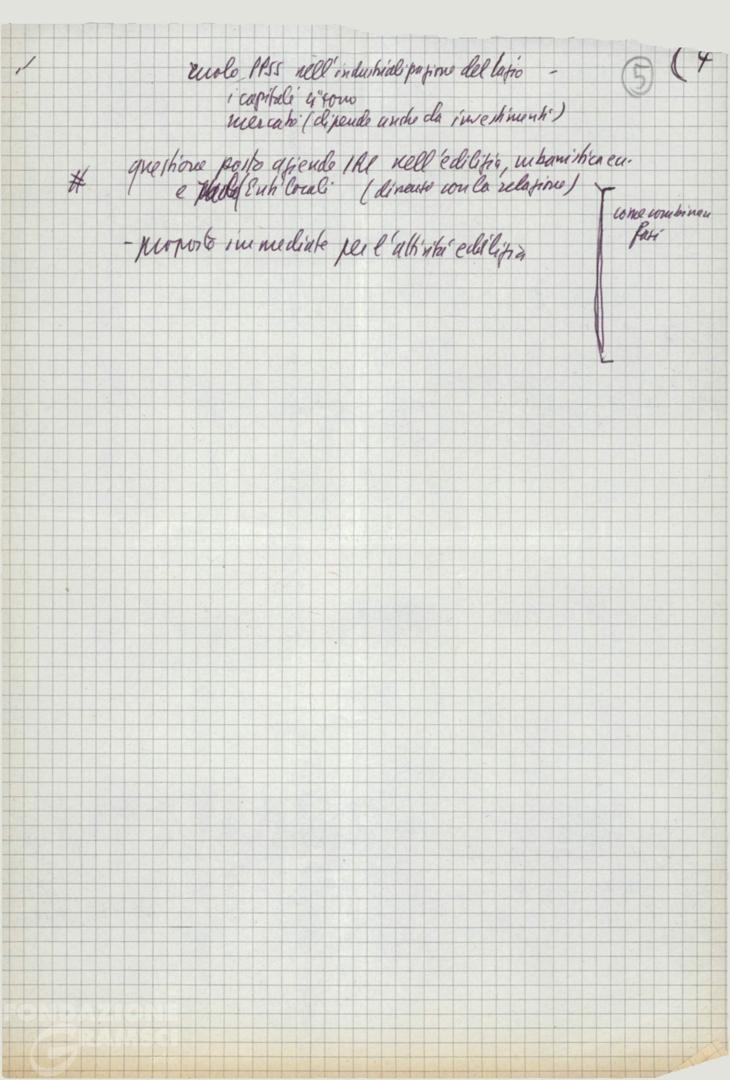 (4
5
ruolo PPSS nell'industrializzazione del Lazio -
i capitali ci sono
mercato (dipende anche da investimenti)
# questione posto aziende IRI nell'edilizia, urbanistica
e Enti locali (discusso con la relazione)
come combinare
fasi
- proposte immediate per l'attività edilizia
FONDAZIONE
GRAMSCI